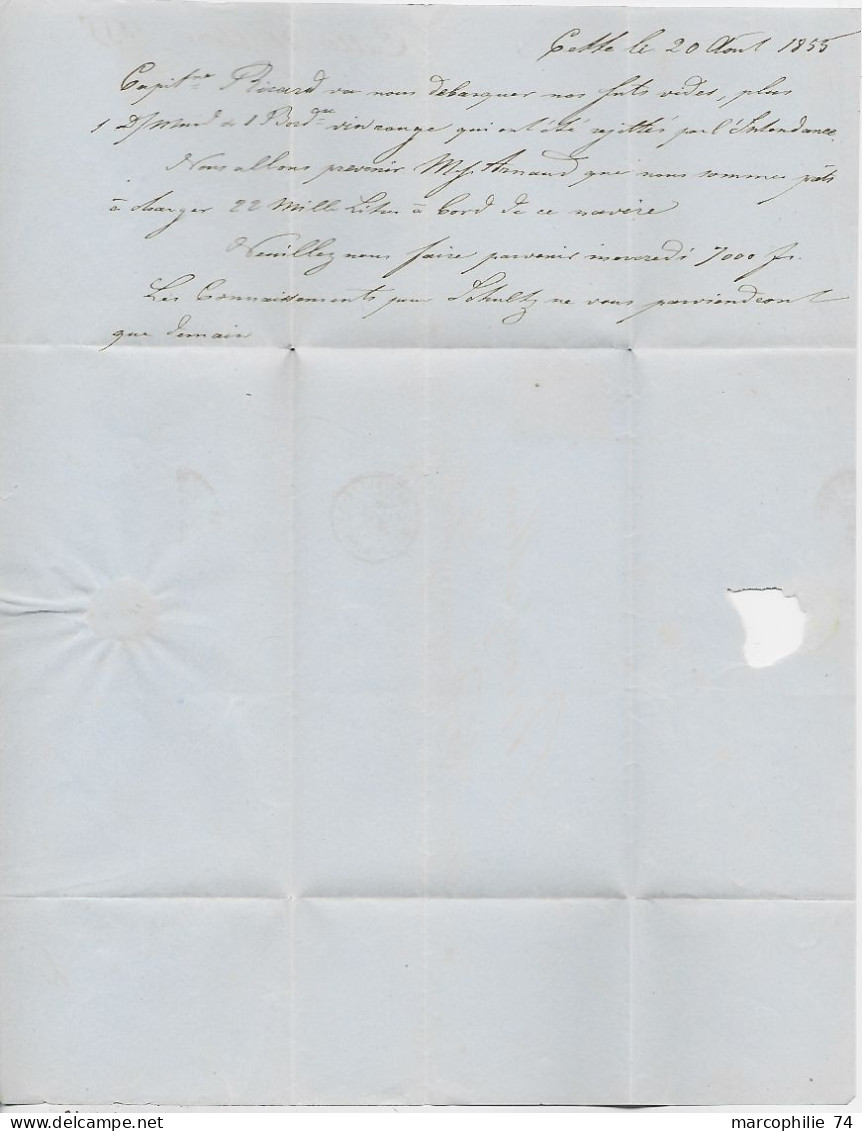 Cette le 20 Aout 1855
Capit.ne Ricard va nous debarquer nos futs vides, plus
1 D/Muid & 1 Bord.que vin rouge qui ont été rejettés par l'Intendance.
Nous allons prevenir M. Arnaud que nous sommes prêts
à charger 22 Mille Litres à bord de ce navire
Veuillez nous faire parvenir mercredi 7000 fs.
Les Connaissements par Schultz ne vous parviendront
que demain
marcophilie 74